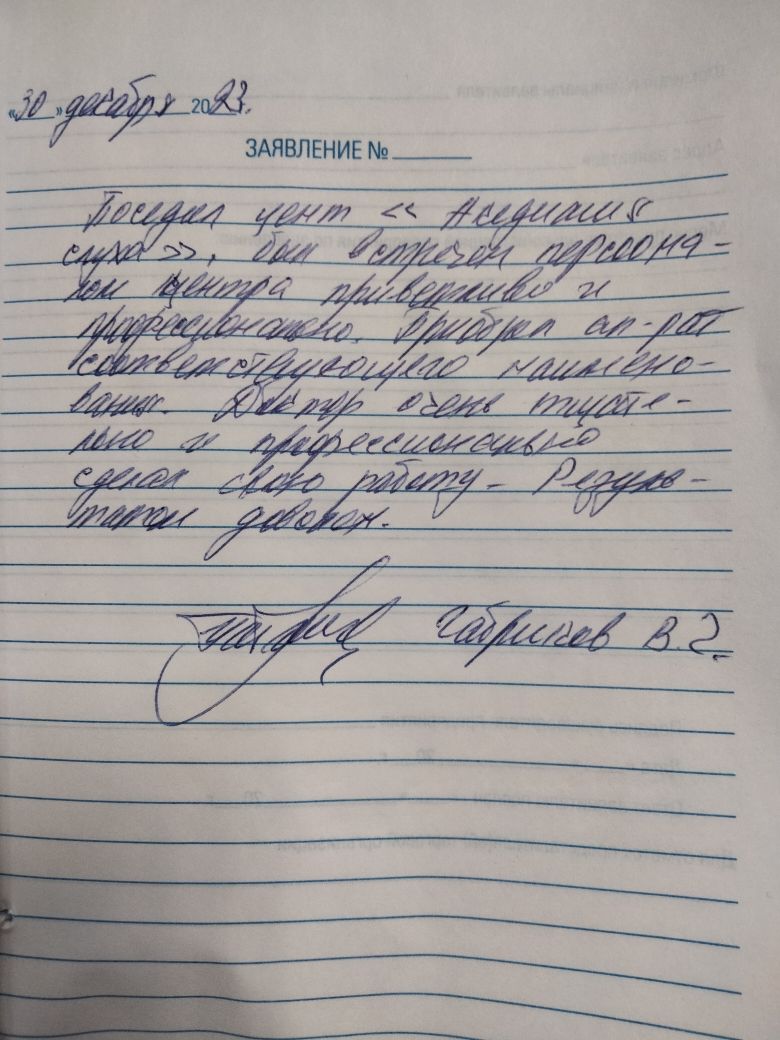 «30» декабря 2023г.
ЗАЯВЛЕНИЕ №
Поседил цент « Акедиамия
слуха», был встречен персона-
лом центра приветливо и
профессионально. Приобрел ап-рат
соответствующего наимено-
вания. Доктор очень тщате-
льно и профессионально
сделал свою работу. Резуль-
татом доволен.
Габриков В.Г.